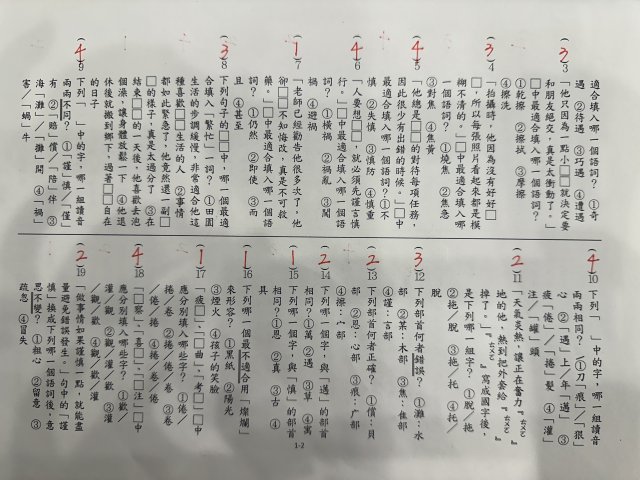 適合填入哪一個語詞？ ①奇
遇 ②待遇 ③巧遇 ④遭遇
(3)3 「他只因為一點小□□就決定要
和朋友絕交，真是太衝動了。」
□中最適合填入哪一個語詞？
①乾擦 ②擦拭 ③摩擦
④擦洗
(3)4 「拍攝時，他因為沒有好好□
□，所以每張照片看起來都是模
糊不清的。」□中最適合填入哪
一個語詞？ ①燒焦 ②焦急
③對焦 ④焦黃
(4)5 「他總是□□的對待每項任務，
因此很少有出錯的時候。」□中
最適合填入哪一個語詞？ ①不
慎 ②失慎 ③慎防 ④慎重
(4)6 「人要想□□，就必須先謹言慎
行。」□中最適合填入哪一個語
詞？ ①橫禍 ②禍亂 ③闖
禍 ④避禍
(1)7 「老師已經勸告他很多次了，他
卻□□不知悔改，真是不可救
藥。」□中最適合填入哪一個語
詞？ ①仍然 ②即使 ③而
且 ④甚至
(3)8 下列句子的□□中，哪一個最適
合填入「繁忙」一詞？ ①田園
生活的步調緩慢，非常適合他這
種喜歡□□生活的人 ②事情
都如此緊急了，他竟然還一副□
□的樣子，真是太過分了 ③在
結束□□的一天後，他喜歡去泡
個澡，讓身體放鬆一下 ④他退
休後就搬到鄉下，過著□□自在
的日子
(4)9 下列「　」中的字，哪一組讀音
兩兩不同？ ①「謹」慎／「僅」
有 ②「賠」償／「陪」伴 ③
海「灘」／「攤」開 ④「禍」
害／「蝸」牛
(4)10 下列「　」中的字，哪一組讀音
兩兩相同？ ①刀「痕」／「狠」
心 ②「遇」上／年「邁」 ③
疲「倦」／「捲」髮 ④「灌」
注／「罐」頭
(2)11 「天氣炎熱，讓正在奮力『ㄊㄨㄛ』
地的他，熱到把外套給『ㄊㄨㄛ』
掉了。」『ㄊㄨㄛ』寫成國字後，
是下列哪一組字？ ①脫／拖
②拖／脫 ③拖／托 ④托／
脫
(3)12 下列部首何者錯誤？ ①灘：水
部 ②某：木部 ③焦：隹部
④謹：言部
(2)13 下列部首何者正確？ ①償：貝
部 ②恩：心部 ③痕：广部
④擦：宀部
(2)14 下列哪一個字，與「遇」的部首
相同？ ①萬 ②邁 ③草 ④寓
(1)15 下列哪一個字，與「慎」的部首
相同？ ①恩 ②真 ③古 ④
具
(1)16 下列哪一個最不適合用「燦爛」
來形容？ ①黑紙 ②陽光
③煙火 ④孩子的笑臉
(1)17 「疲□」、「□曲」、「考□」□中
應分別填入哪些字？ ①倦／
捲／卷 ②捲／卷／倦 ③卷
／倦／捲 ④捲／倦／卷
(4)18 「□察」、「喜□」、「□注」□中
應分別填入哪些字？ ①歡／
灌／觀 ②歡／觀／灌 ③灌
／觀／歡 ④觀／歡／灌
(2)19 「做事情如果謹慎一點，就能盡
量避免錯誤發生。」句中的「謹
慎」換成下列哪一個語詞後，意
思不變？ ①粗心 ②留意 ③
疏忽 ④冒失
1-2